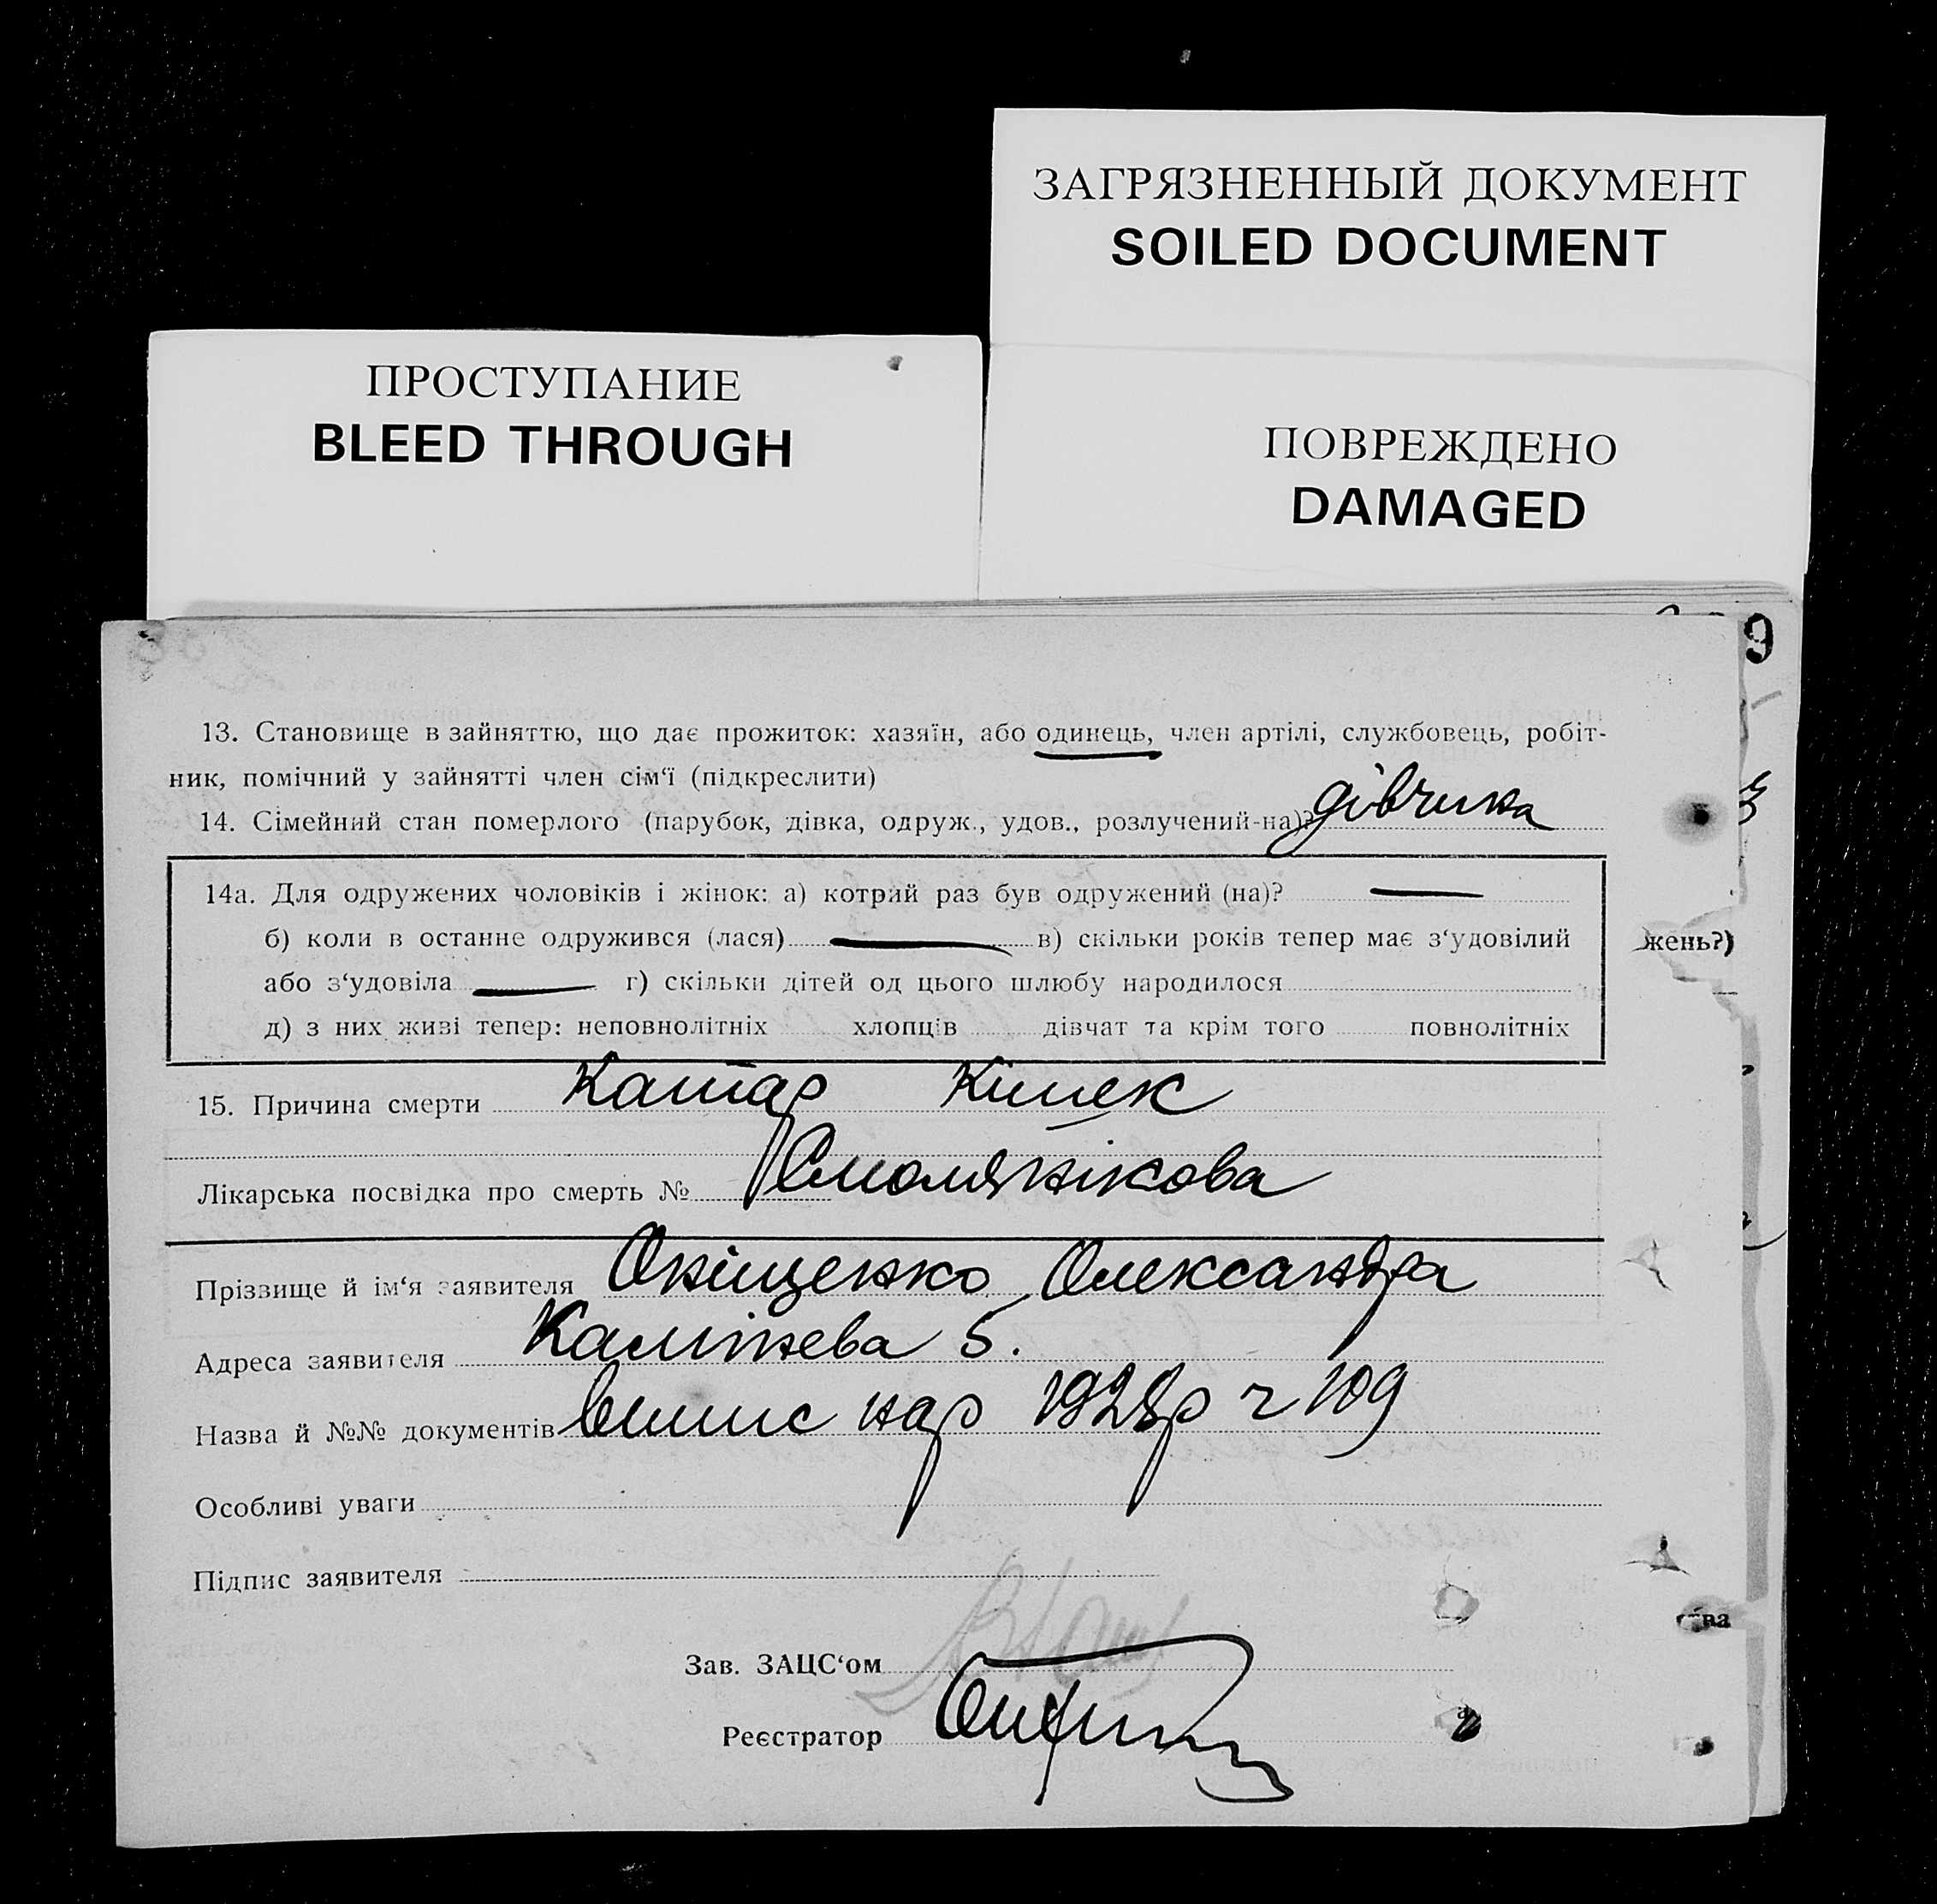 ЗАГРЯЗНЕННЫЙ ДОКУМЕНТ
SOILED DOCUMENT
ПРОСТУПАНИЕ
BLEED THROUGH
ПОВРЕЖДЕНО
DAMAGED
9
13. Становище в зайняттю, що дає прожиток: хазяїн, або одинець, член артілі, службовець, робіт-
ник, помічний у зайнятті член сім'ї (підкреслити)
14. Сімейний стан померлого (парубок, дівка, одруж., удов., розлучений-на)? дівчина
14а. Для одружених чоловіків і жінок: а) котрий раз був одружений (на)? —
б) коли в останне одружився (лася) — в) скільки років тепер має з'удовілий
або з'удовіла — г) скільки дітей од цього шлюбу народилося
д) з них живі тепер: неповнолітніх хлопців дівчат та крім того повнолітніх
жень?)
15. Причина смерти Катар Кишек
Лікарська посвідка про смерть № Смолянікова
Прізвище й ім'я заявителя Оніщенко Олександра
Адреса заявителя Калінева 5.
Назва й №№ документів Випис нар 1928р ч 109
Особливі уваги
Підпис заявителя
ва
Зав. ЗАЦС'ом
Реєстратор